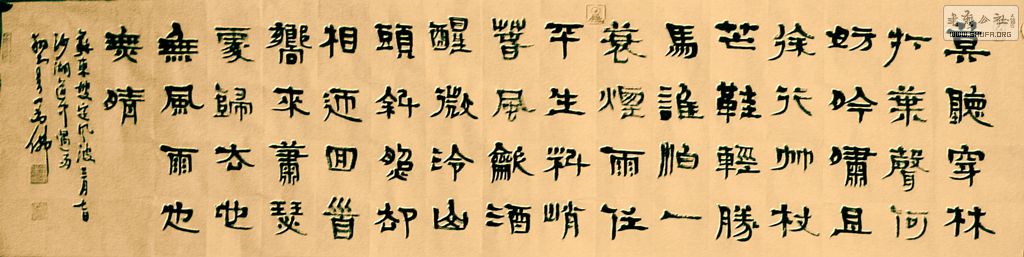 莫聽穿林
打葉聲何
妨吟嘯且
徐行竹杖
芒鞋輕勝
馬誰怕一
蓑煙雨任
平生料峭
春風龡酒
醒微冷山
頭斜照却
相迎回首
嚮來蕭瑟
處歸去也
無風雨也
無晴
蘇東坡定風波三月七日
沙湖道中遇雨
書法公社
WWW.SHUFA.ORG